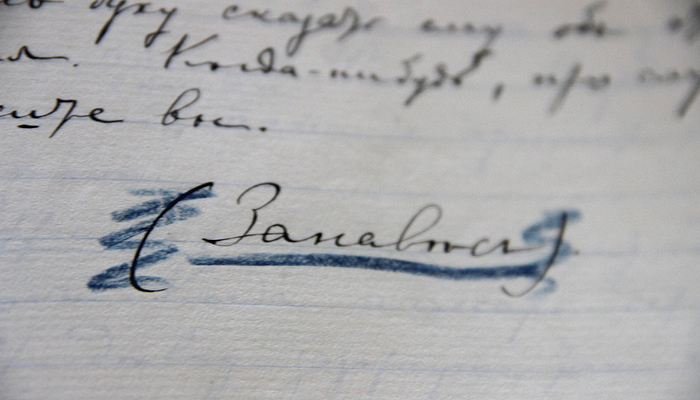 духу сказать ему об
Когда-нибудь, при
вы.
(Занавѣсъ)